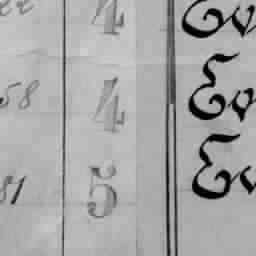 4 Ev
58 4 Ev
81 5 Ev